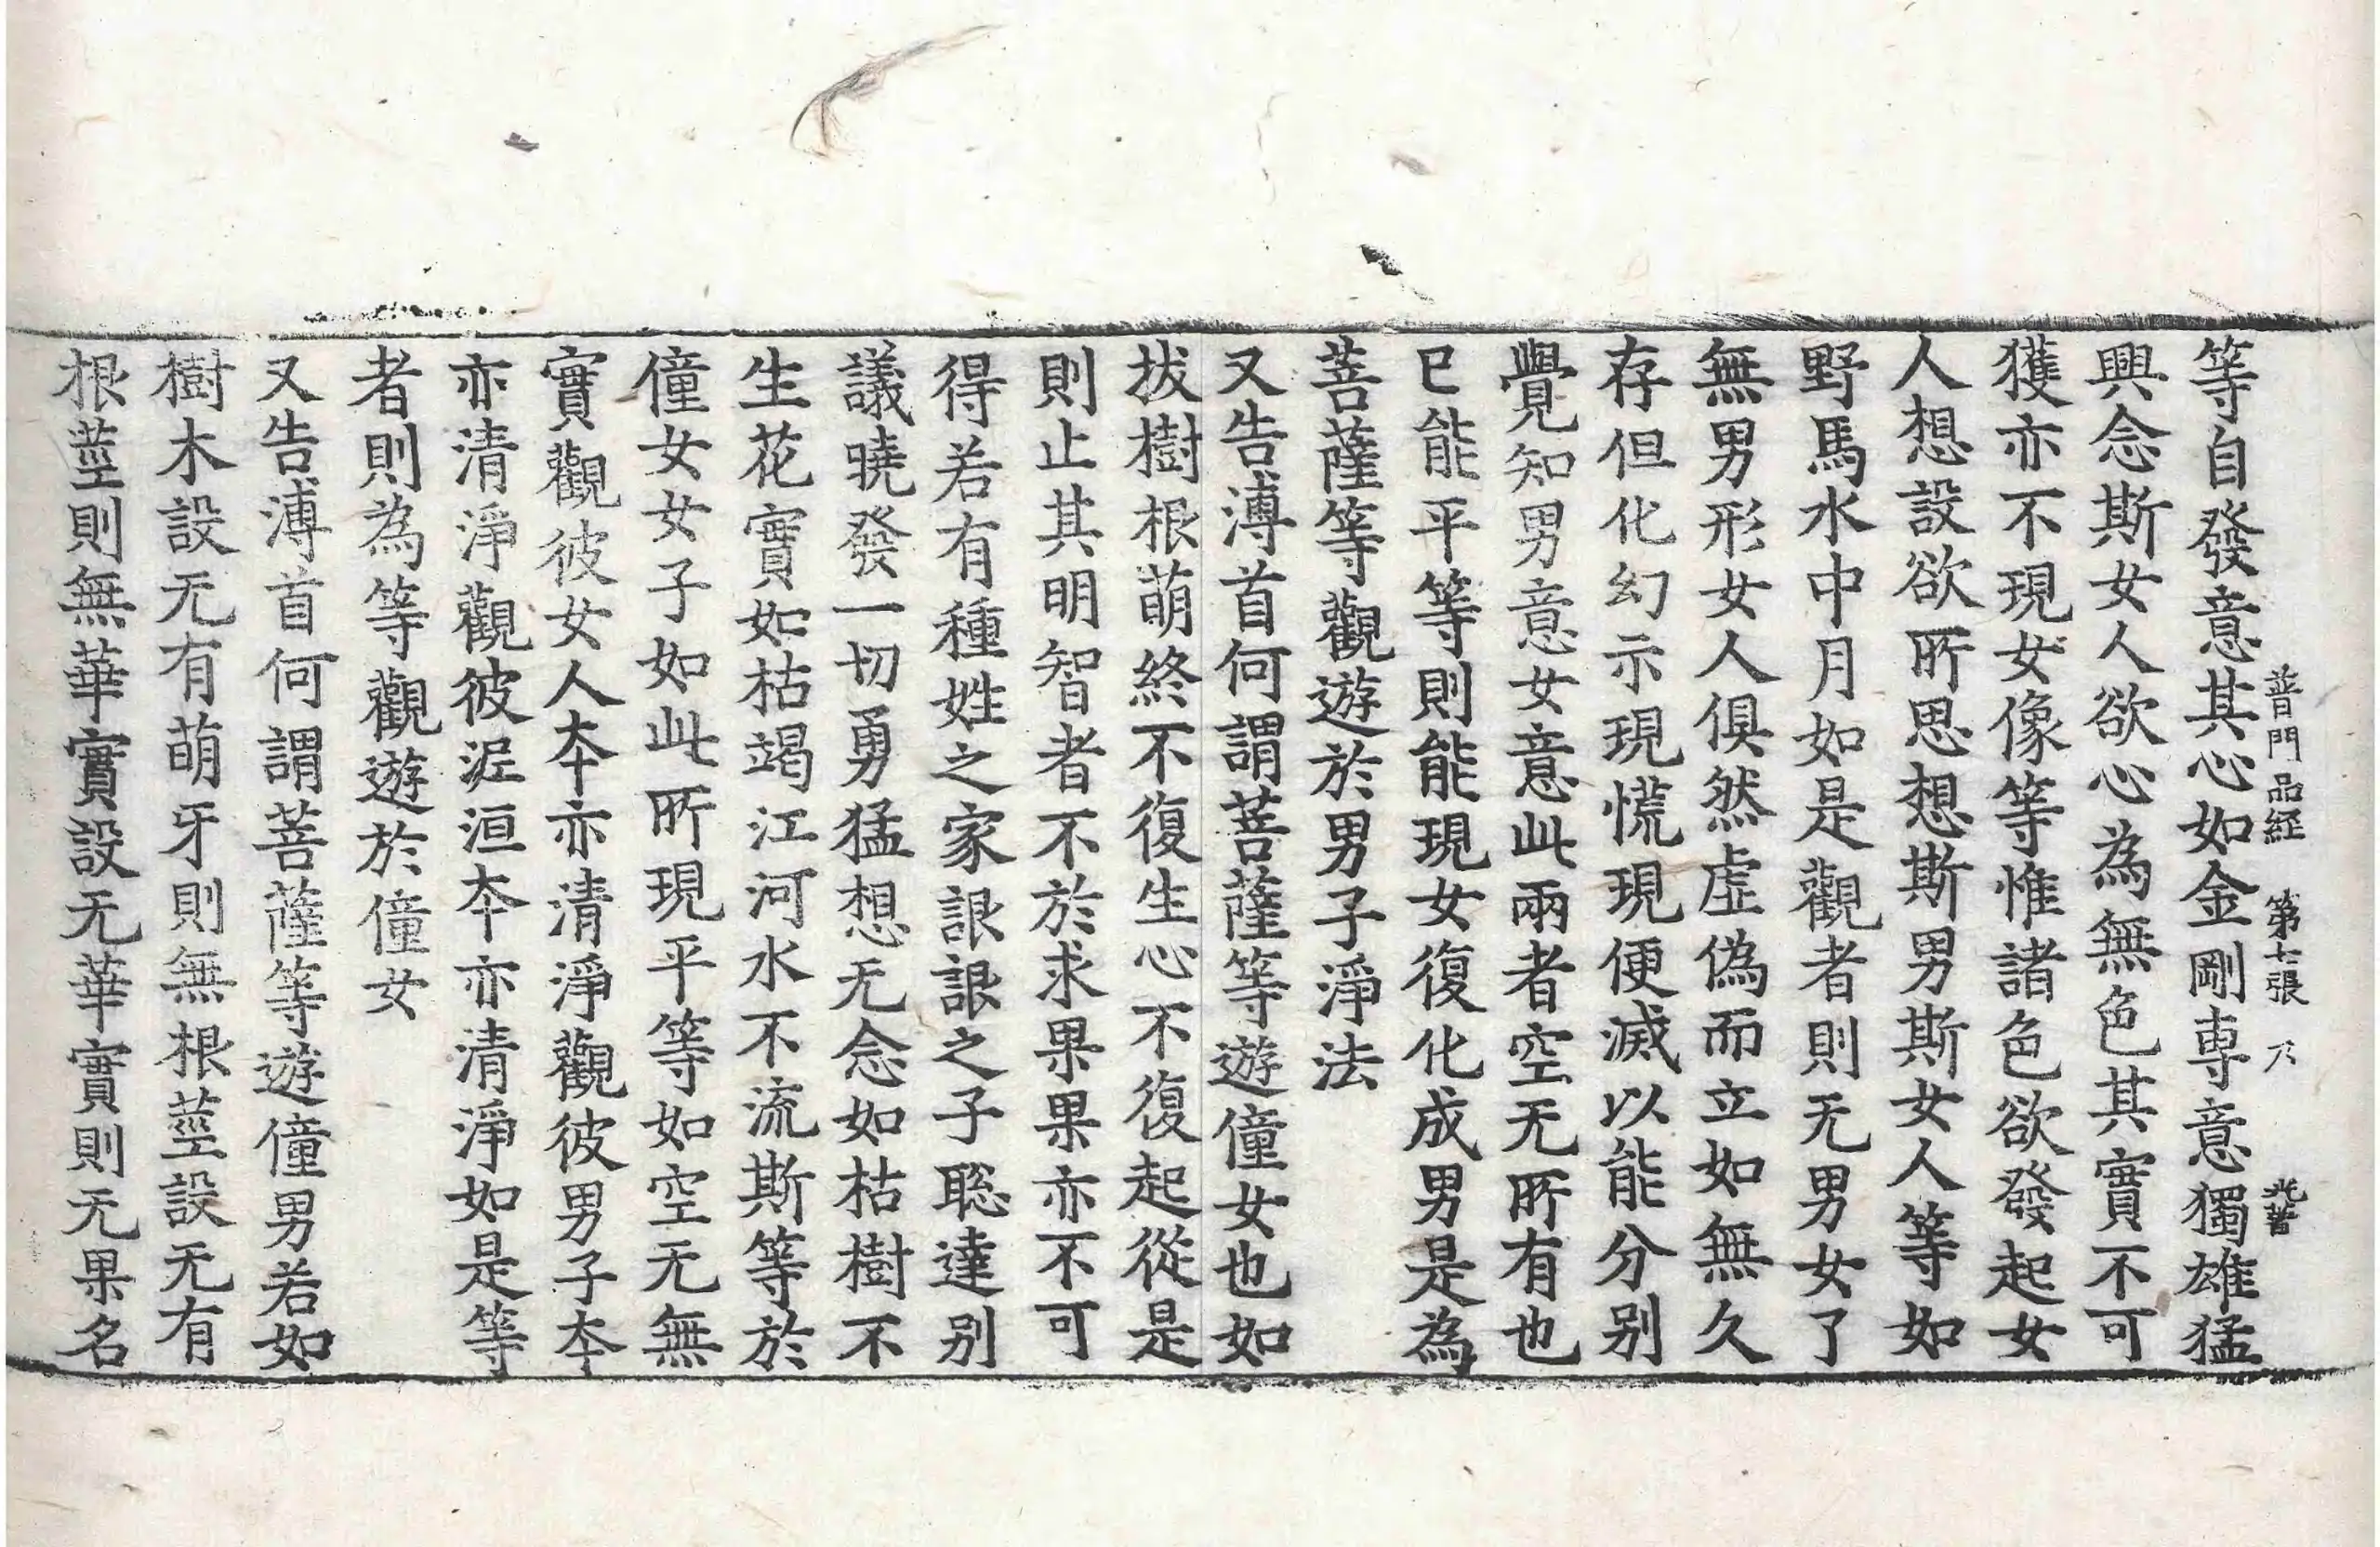 普門品経 第七張 乃
等自發意其心如金剛専意獨雄猛
興念斯女人欲心為無色其實不可
獲亦不現女像等惟諸色欲發起女
人想設欲所思想斯男斯女人等如
野馬水中月如是觀者則无男女了
無男形女人俱然虛偽而立如無久
存但化幻示現慌現便滅以能分别
覺知男意女意此兩者空无所有也
已能平等則能現女復化成男是為
菩薩等觀遊於男子淨法
又告溥首何謂菩薩等遊僮女也如
拔樹根萌終不復生心不復起從是
則止其明智者不於求果果亦不可
得若有種姓之家詪詪之子聡達别
議曉發一切勇猛想无念如枯樹不
生花實如枯竭江河水不流斯等於
僮女女子如此所現平等如空无無
實觀彼女人夲亦清淨觀彼男子夲
亦清淨觀彼泥洹夲亦清淨如是等
者則為等觀遊於僮女
又告溥首何謂菩薩等遊僮男若如
樹木設无有萌牙則無根莖設无有
根莖則無華實設无華實則无果名